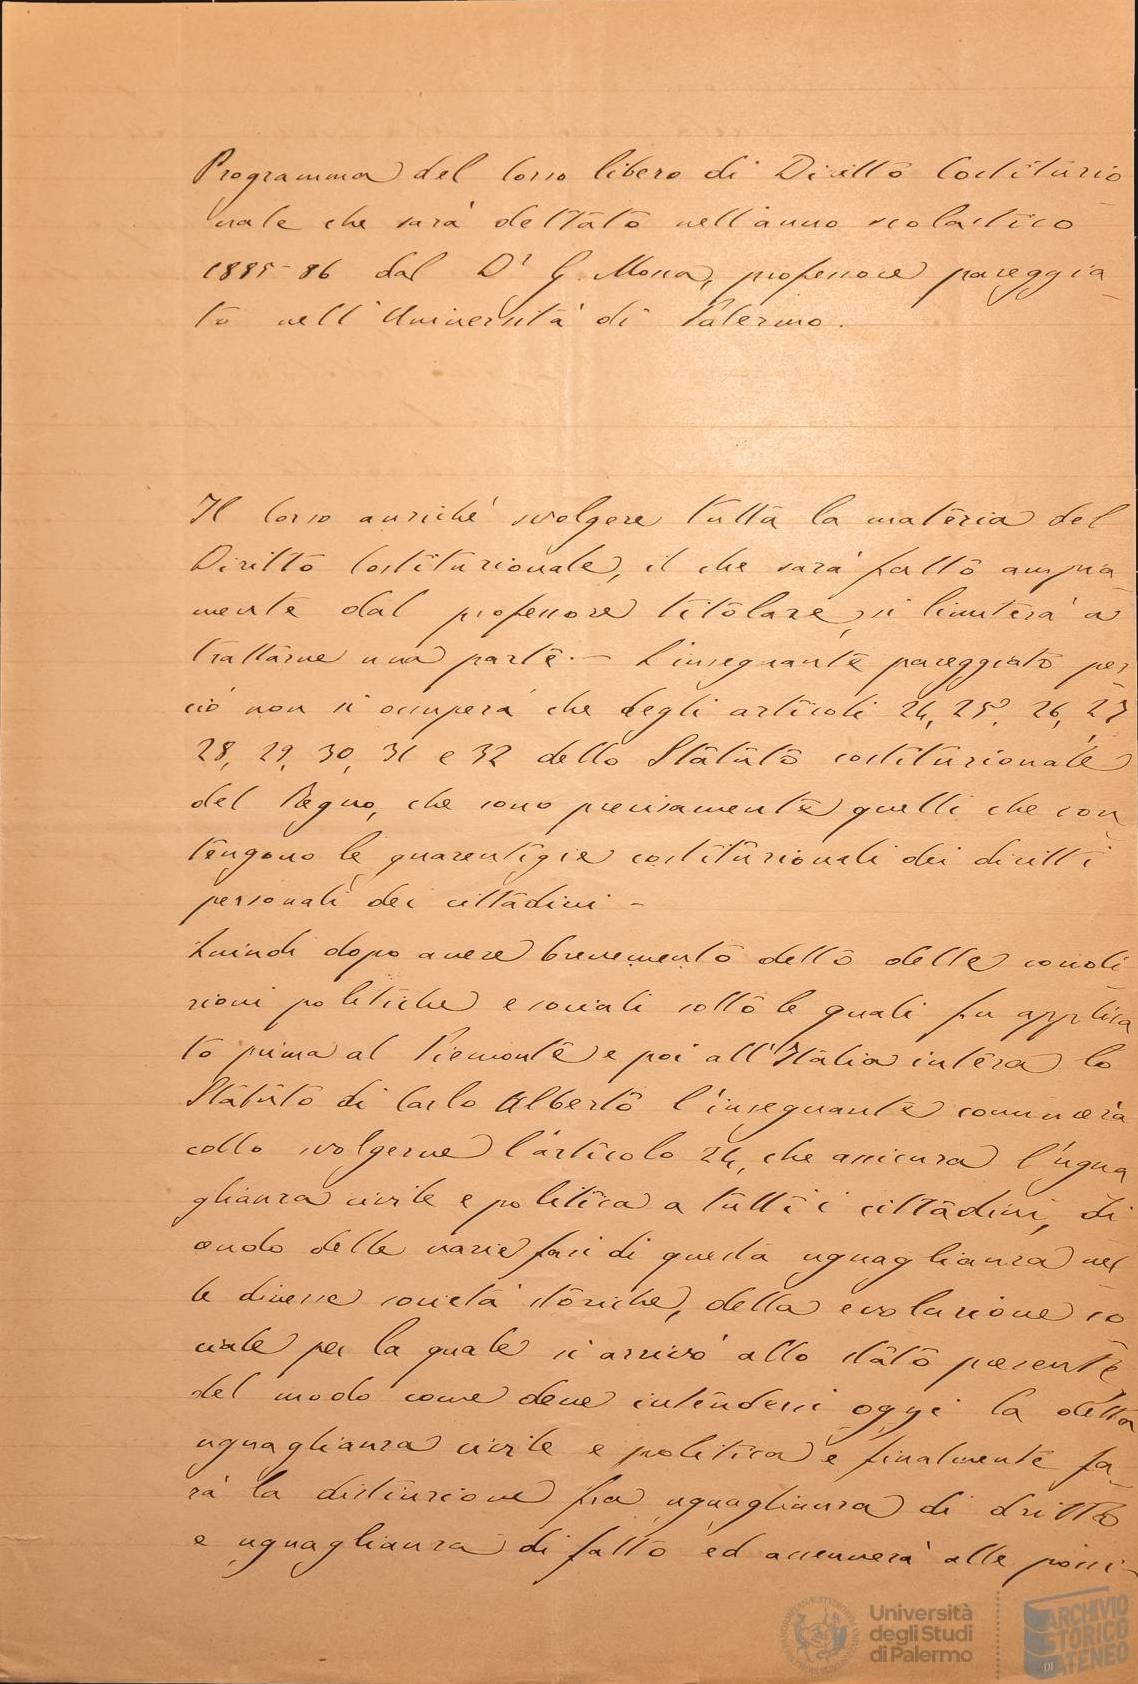 Programma del Corso libero di Diritto Costituzio
nale che sarà dettato nell'anno scolastico
1885-86 dal Dr G. Mosca, professore pareggia-
to nell'Università di Palermo.
Il Corso anziché svolgere tutta la materia del
Diritto Costituzionale, il che sarà fatto ampia-
mente dal professore titolare, si limiterà a
trattarne una parte. — L'insegnante pareggiato per-
ciò non si occuperà che degli articoli 24, 25, 26, 27
28, 29, 30, 31 e 32 dello Statuto costituzionale
del Regno, che sono precisamente quelli che con-
tengono le guarentigie costituzionali dei diritti
personali dei cittadini -
Quindi dopo avere brevemento detto delle condi-
zioni politiche e sociali sotto le quali fu applica
to prima al Piemonte e poi all'Italia intera lo
Statuto di Carlo Alberto l'insegnante comincerà
collo svolgerne l'articolo 24, che assicura l'ugua
glianza civile e politica a tutti i cittadini, di
cendo delle varie fasi di questa uguaglianza nel-
le diverse società storiche, della evoluzione so
ciale per la quale si arrivò allo stato presente
del modo come deve intendersi oggi la detta
uguaglianza civile e politica e finalmente fa-
rà la distinzione fra uguaglianza di dritto
e uguaglianza di fatto ed accennerà alle possi-
Università
degli Studi
di Palermo
ARCHIVIO
STORICO
DI ATENEO